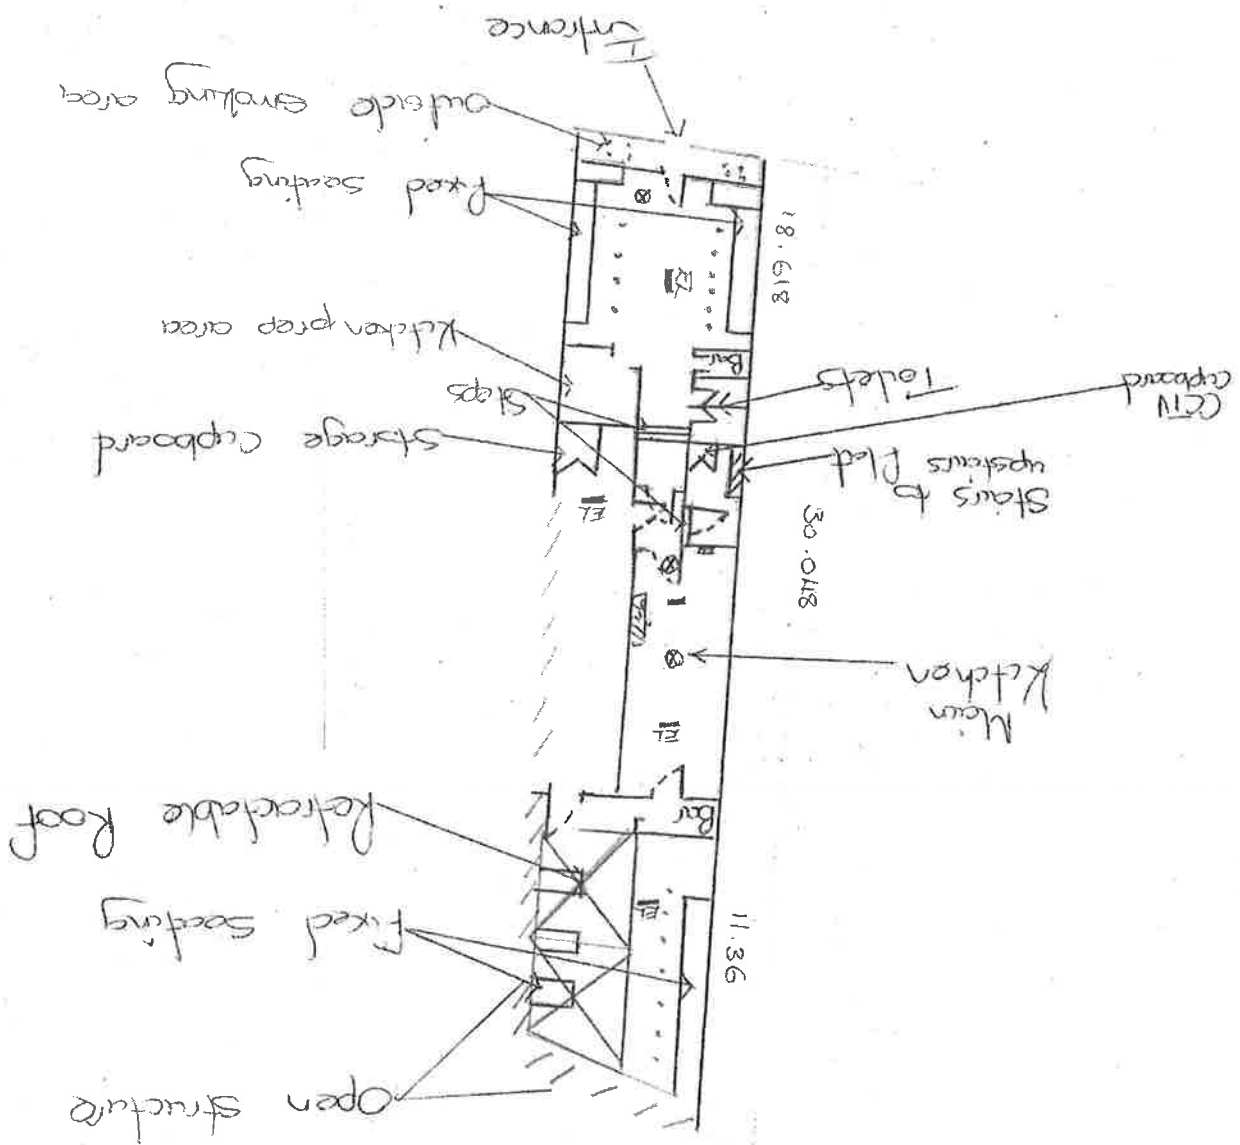 Open structure
Fixed Seating
11.36
EL
Retractable Roof
Bar
Main
Kitchen
EL
30.048
EL
Stairs to
upstairs Flat
Storage Cupboard
CCTV
Cupboard
Steps
Toilets
Kitchen prep area
Bar
18.618
EL
Fixed Seating
outside smoking area
Entrance